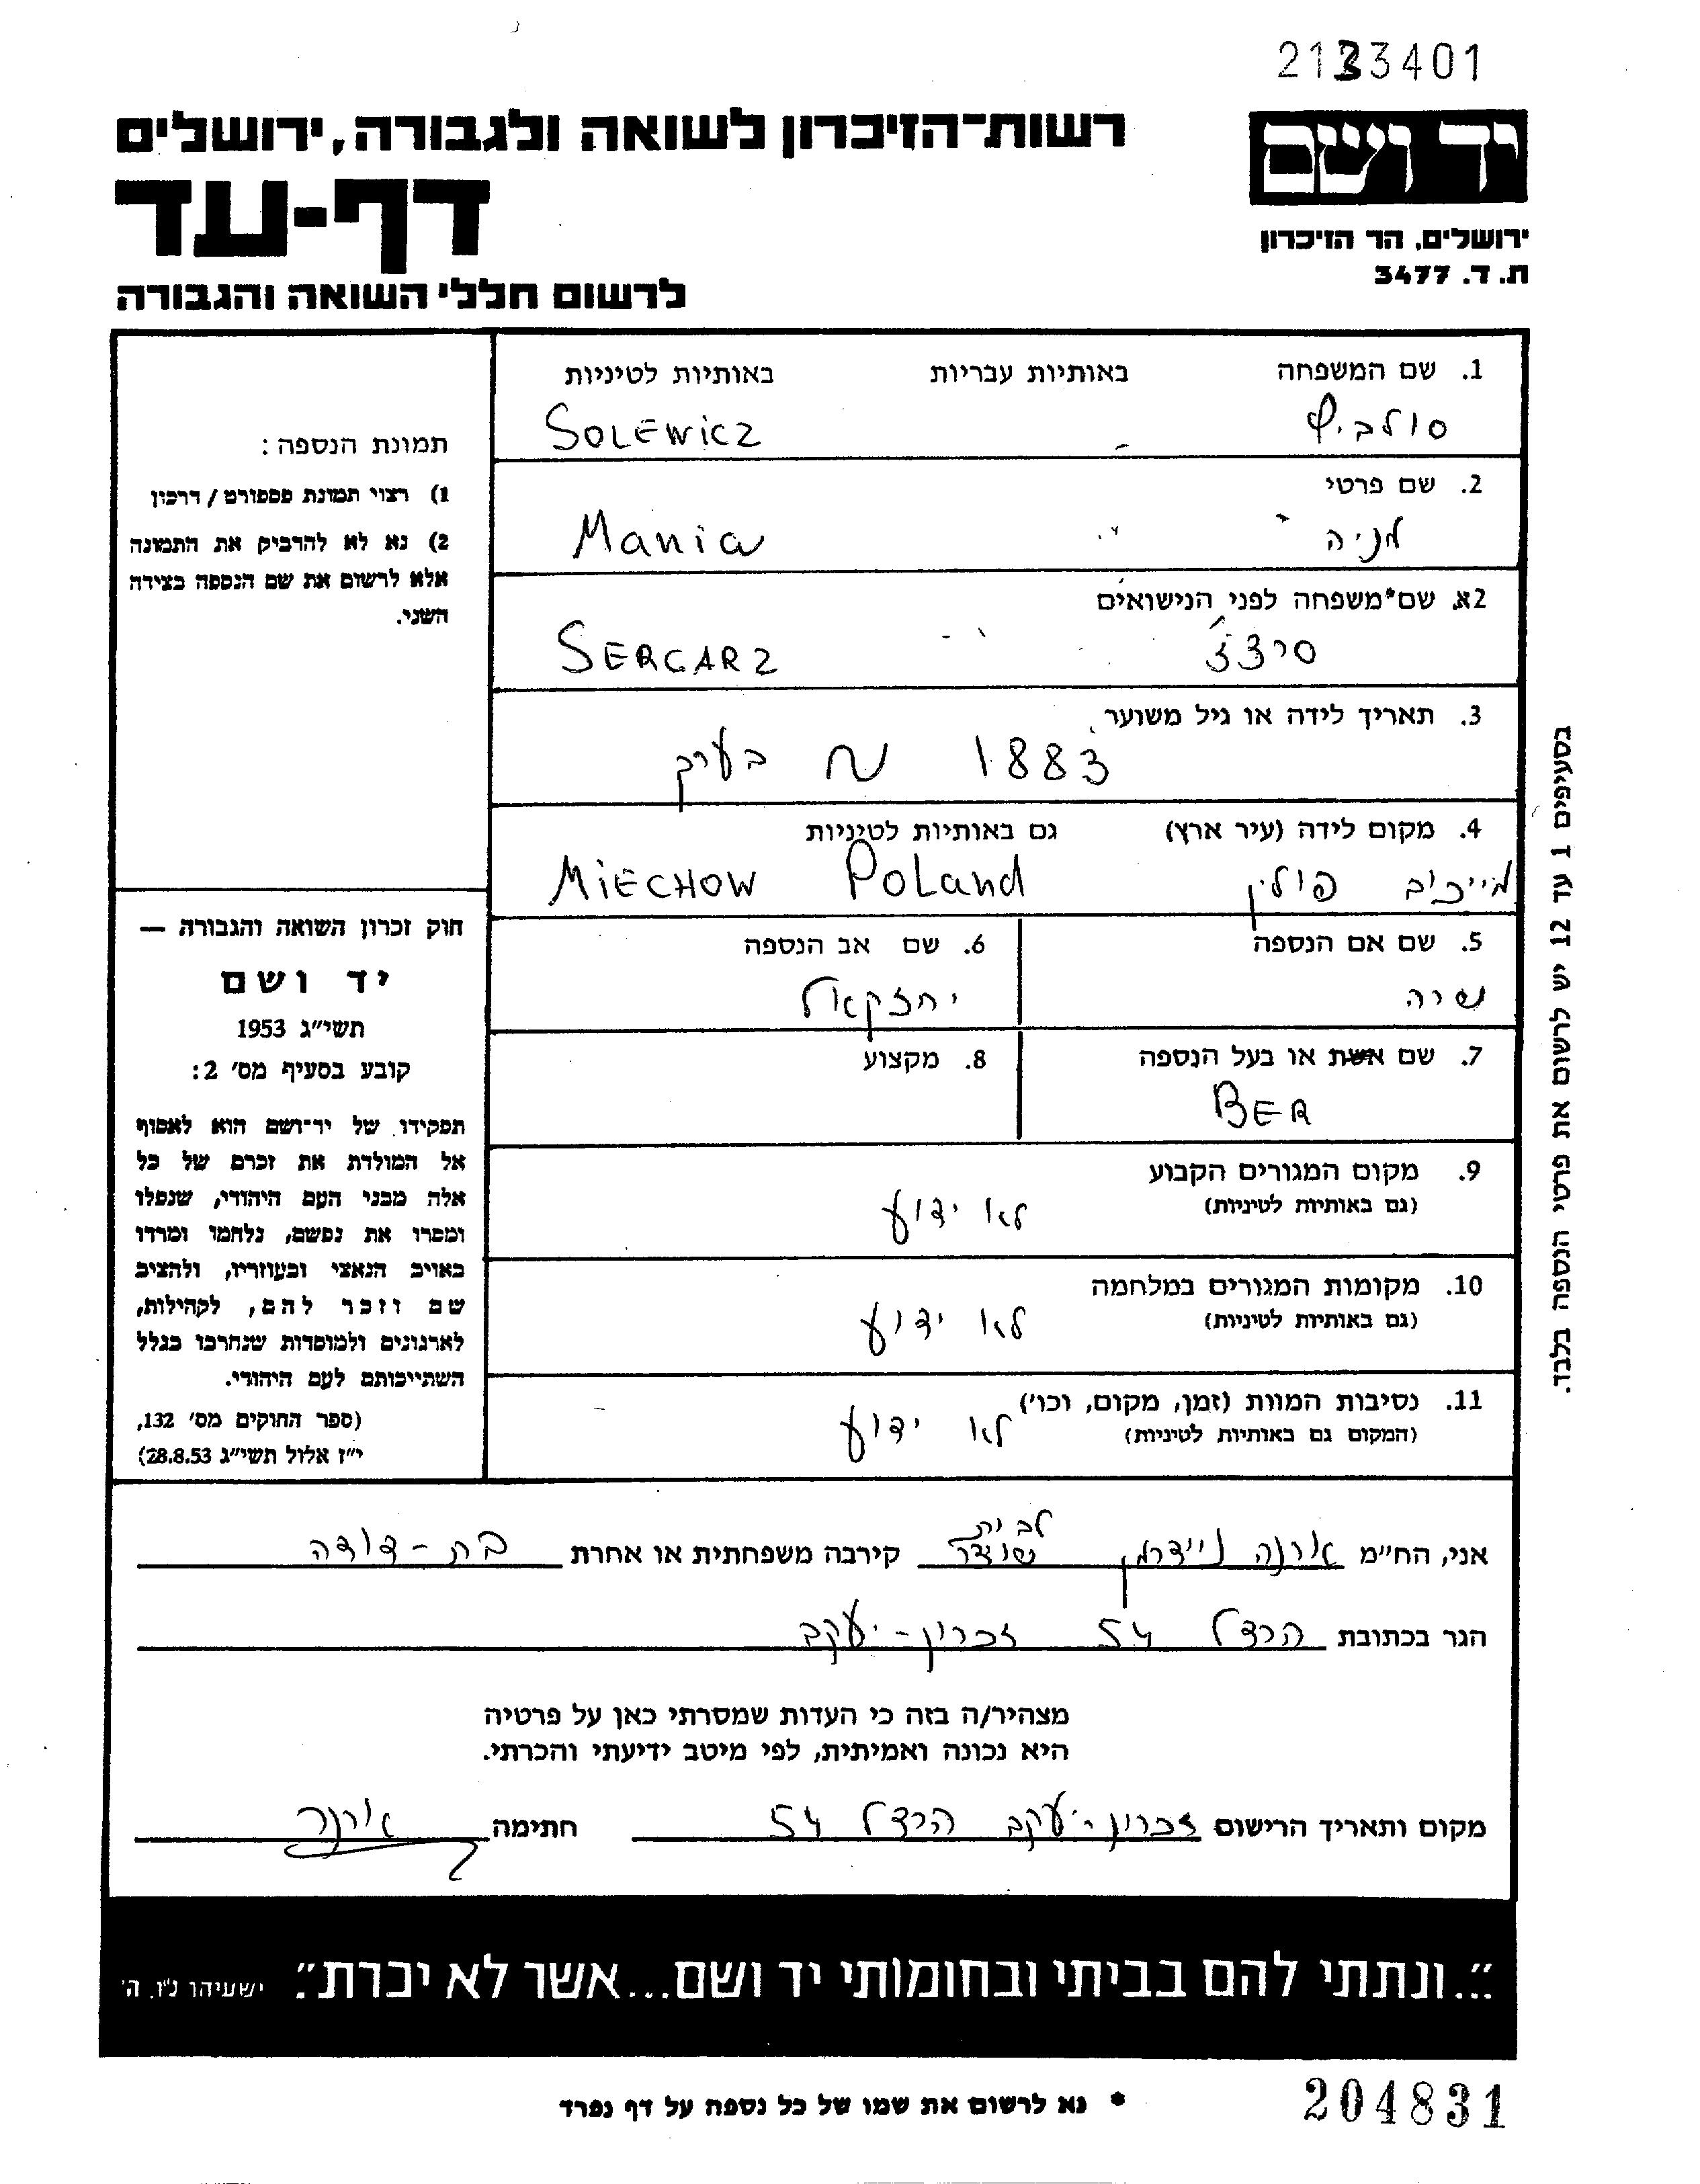 2133401
יד ושם
רשות־הזיכרון לשואה ולגבורה, ירושלים
דף-עד
לרשום חללי השואה והגבורה
ירושלים, הר הזיכרון
ת. ד. 3477
1. שם המשפחה באותיות עבריות באותיות לטיניות
סולביץ SOLEWICZ
2. שם פרטי
מניה Mania
2א. שם משפחה לפני הנישואים
SERCARZ
3. תאריך לידה או גיל משוער
1883 ~ בערך
4. מקום לידה (עיר ארץ) גם באותיות לטיניות
מייכוב פולין MIECHOW Poland
5. שם אם הנספה
שרה
6. שם אב הנספה
יחזקאל
7. שם אשת או בעל הנספה
BER
8. מקצוע
9. מקום המגורים הקבוע
(גם באותיות לטיניות)
לא ידוע
10. מקומות המגורים במלחמה
(גם באותיות לטיניות)
לא ידוע
11. נסיבות המוות (זמן, מקום, וכו')
(המקום גם באותיות לטיניות)
לא ידוע
תמונת הנספה:
1) רצוי תמונת פספורט / דרכון
2) נא לא להדביק את התמונה
אלא לרשום את שם הנספה בצידה
השני.
חוק זכרון השואה והגבורה —
יד ושם
תשי"ג 1953
קובע בסעיף מס' 2:
תפקידו של יד־ושם הוא לאסוף
אל המולדת את זכרם של כל
אלה מבני העם היהודי, שנפלו
ומסרו את נפשם, נלחמו ומרדו
באויב הנאצי ובעוזריו, ולהציב
שם וזכר להם, לקהילות,
לארגונים ולמוסדות שנחרבו בגלל
השתייכותם לעם היהודי.
(ספר החוקים מס' 132,
י"ז אלול תשי"ג 28.8.53)
בסעיפים 1 עד 12 יש לרשום את פרטי הנספה בלבד.
לבית
אני, הח"מ ארנה ניידרמן קירבה משפחתית או אחרת בת-דודה
הגר בכתובת הרצל 54 זכרון-יעקב
מצהיר/ה בזה כי העדות שמסרתי כאן על פרטיה
היא נכונה ואמיתית, לפי מיטב ידיעתי והכרתי.
מקום ותאריך הרישום זכרון-יעקב הרצל 54 חתימה
"...ונתתי להם בביתי ובחומותי יד ושם...אשר לא יכרת". ישעיהו נ"ו, ה'
* נא לרשום את שמו של כל נספה על דף נפרד
204831